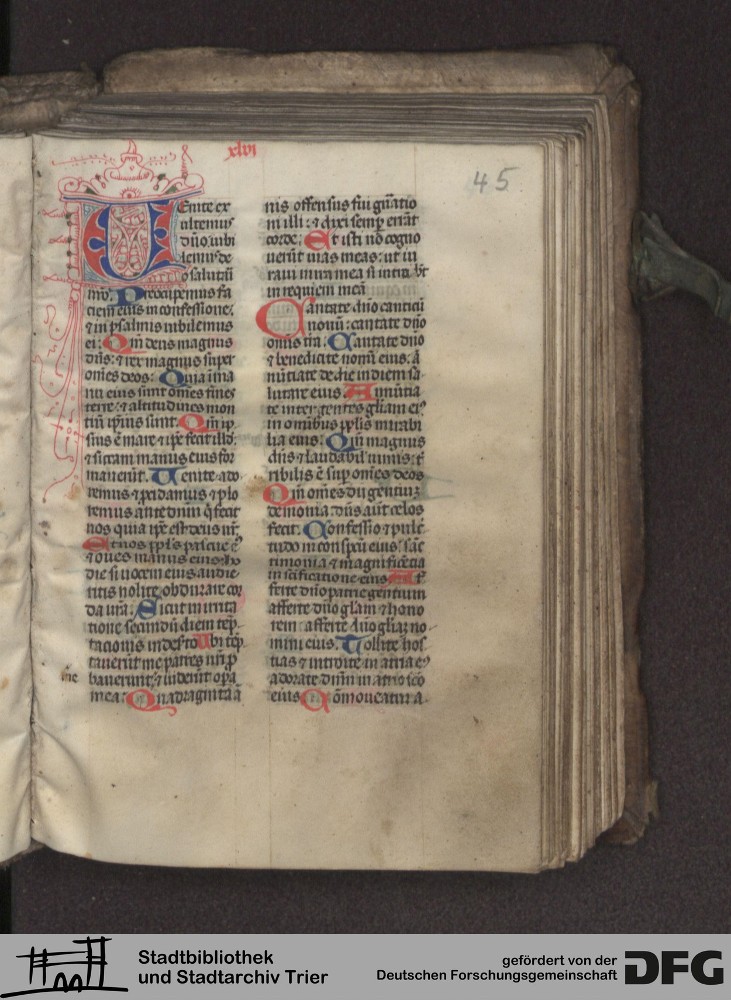 xlvi
45
Venite ex
ultemus
dño iubi
lemus de
o salutari
nr̃o. Preocupemus fa
ciem eius in confessione:
⁊ in psalmis iubilemus
ei: Qm̃ deus magnus
dñs: ⁊ rex magnus super
om̃es deos: Quia ĩ ma
nu eius sunt om̃es fines
terre: ⁊ altitudines mon
tiũ ip̃ius sunt. Qm̃ ip̃
sius ẽ mare ⁊ ip̃e fecit illd̃:
⁊ siccam manus eius for
mauerũt. Uenite ado
remus ⁊ p̃cidamus ⁊ plo
remus ante dñm q̃ fecit
nos quia ip̃e est deus nr̃.
Et nos pp̃ls pascue eꝰ
⁊ oues manus eius ho
die si uocem eius audie
ritis nolite obdurare cor
da ur̃a: Sicut in irrita
tione secundũ diem tẽp
tacionis in deserto Ubi tẽp
tauerũt me patres ur̃i ꝓ
bauerunt: ⁊ uiderũt oꝑa
mea: Quadraginta ã
nis offensus fui gñatio
ni illi: ⁊ dixi semꝑ errãt
corde. Et isti nõ cogno
uerũt uias meas: ut iu
raui in ira mea si introibũt
in requiem meã
Cantate dño canticũ
nouũ: cantate dño
omnis tr̃a: Cantate dño
⁊ benedicite nomĩ eius: ã
nũtiate de die in diem sa
lutare eius. Annũtia
te inter gentes gl̃iam eiꝰ
in omnibus pp̃lis mirabi
lia eius: Qm̃ magnus
dñs ⁊ laudabilis nimis: t̃
ribilis ẽ suꝑ om̃es deos
Qm̃ om̃es dii gentiũ
demonia: dñs aũt celos
fecit. Confessio ⁊ pulc̃
tudo in conspc̃u eius: sãc
timonia ⁊ magnificẽcia
in scificatione eius Af
ferte dño patrie gentium
afferte dño gl̃am ⁊ hono
rem: afferte dño gl̃iaꝫ no
mini eius. Tollite hos
tias ⁊ introite in atria eꝰ
adorate dñm in atrio sc̃o
eius Cõmoueatur a
Stadtbibliothek
und Stadtarchiv Trier
gefördert von der
Deutschen Forschungsgemeinschaft
DFG